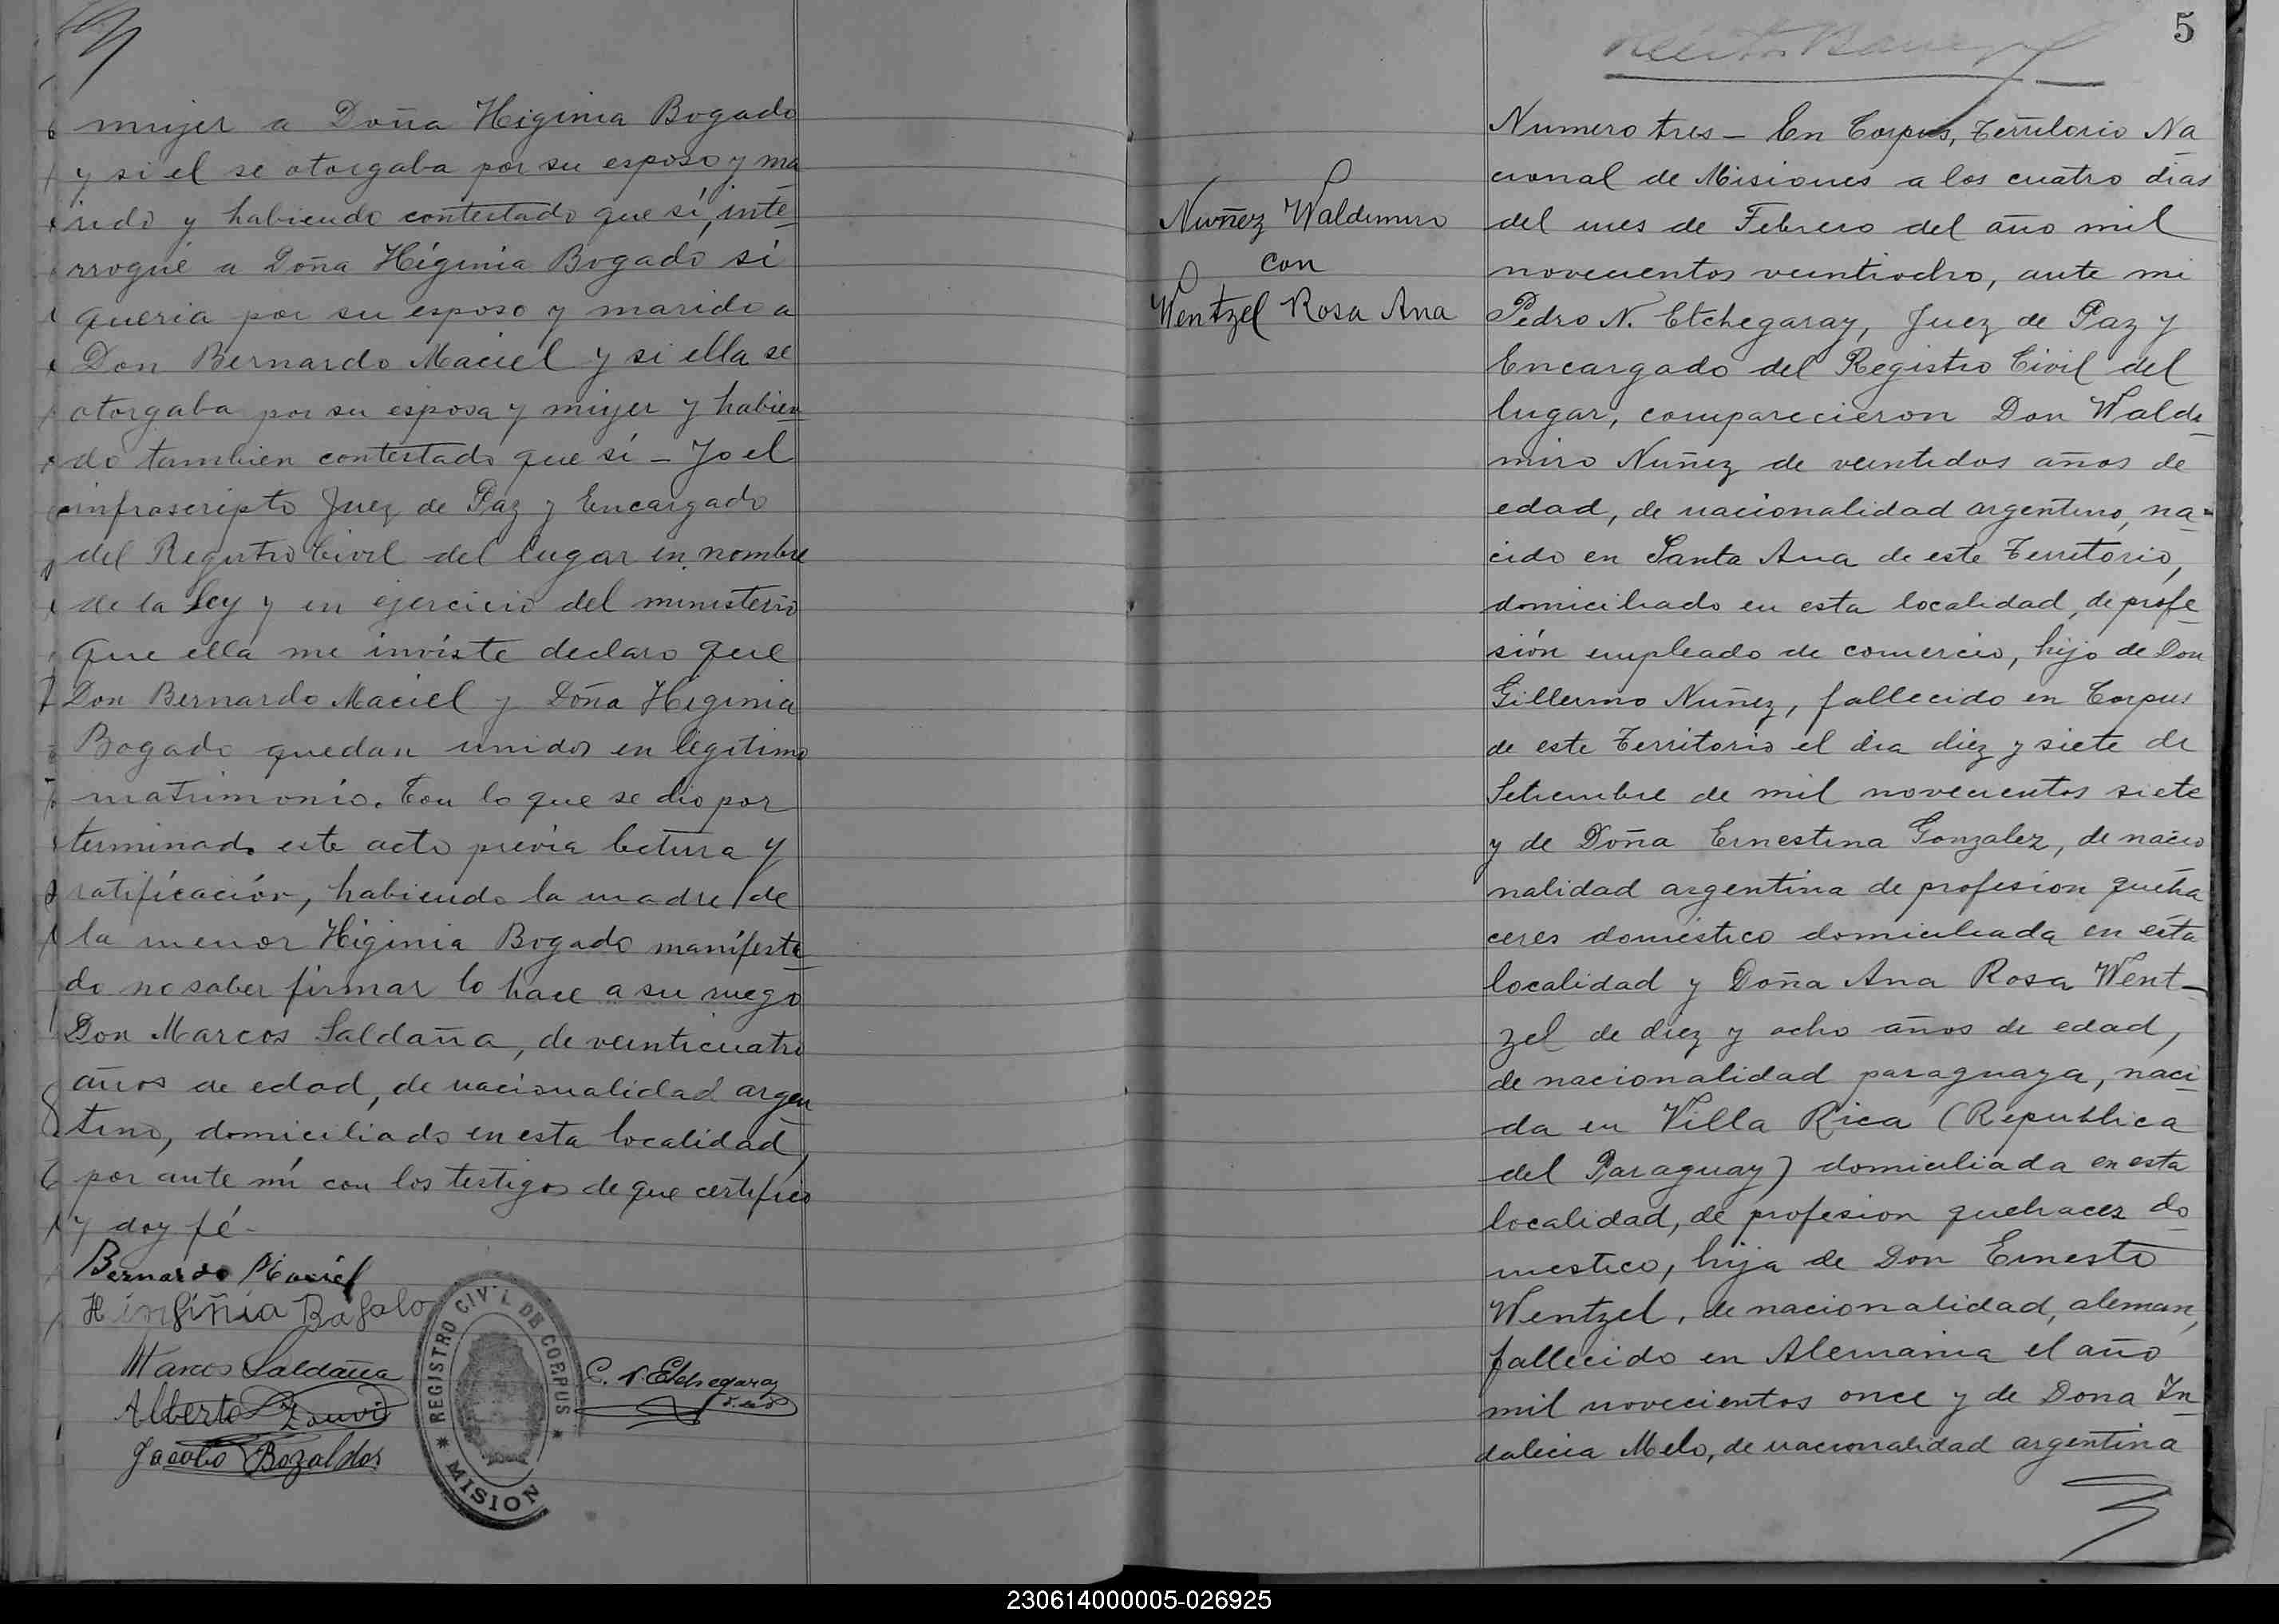 mujer a Doña Higinia Bogado
y si el se otorgaba por su esposo y ma
rido y habiendo contestado que sí, inte
rrogué a Doña Higinia Bogado si
queria por su esposo y marido a
Don Bernardo Maciel y si ella se
otorgaba por su esposa y mujer y habien
do tambien contestado que sí - Yo el
infrascripto Juez de Paz y Encargado
del Registro Civil del lugar en nombre
de la ley y en ejercicio del ministerio
que ella me inviste declaro que
Don Bernardo Maciel y Doña Higinia
Bogado quedan unidos en legitimo
matrimonio. Con lo que se dio por
terminado este acto previa lectura y
ratificación, habiendo la madre de
la menor Higinia Bogado manifesta
do no saber firmar lo hace a su ruego
Don Marcos Saldaña, de veinticuatro
años de edad, de nacionalidad argen
tino, domiciliado en esta localidad,
por ante mí con los testigos de que certifico
y doy fé -
Bernardo Maciel
Marcos Saldaña
Alberto
Jacobo Bozaldos
REGISTRO CIVIL DE CORPUS
* MISION *
Etchegaray
5
Nuñez Waldimiro
con
Wentzel Rosa Ana
Numero tres - En Corpus, Territorio Na
cional de Misiones a los cuatro dias
del mes de Febrero del año mil
novecientos veintiocho, ante mi
Pedro N. Etchegaray, Juez de Paz y
Encargado del Registro Civil del
lugar, comparecieron Don Waldi
miro Nuñez de veintidos años de
edad, de nacionalidad argentino, na-
cido en Santa Ana de este Territorio,
domiciliado en esta localidad, de profe
sión empleado de comercio, hijo de Don
Gillermo Nuñez, fallecido en Corpus
de este Territorio el dia diez y siete de
Setiembre de mil novecientos siete
y de Doña Ernestina Gonzalez, de nacio
nalidad argentina de profesion queha
ceres doméstico domiciliada en esta
localidad y Doña Ana Rosa Went-
zel de diez y ocho años de edad,
de nacionalidad paraguaya, naci
da en Villa Rica (Republica
del Paraguay) domiciliada en esta
localidad, de profesion quehacer do
mestico, hija de Don Ernesto
Wentzel, de nacionalidad, aleman,
fallecido en Alemania el año
mil novecientos once y de Dona In
dalecia Melo, de nacionalidad argentina
230614000005-026925